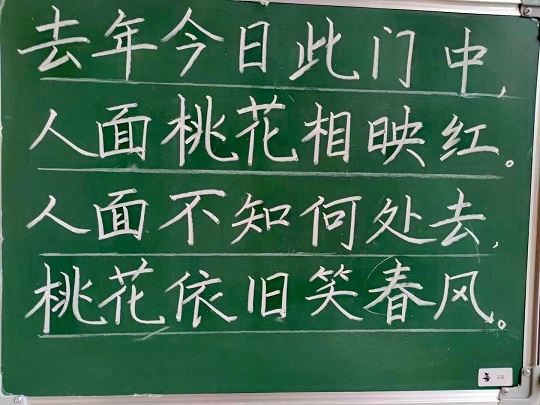 去年今日此门中,
人面桃花相映红。
人面不知何处去,
桃花依旧笑春风。